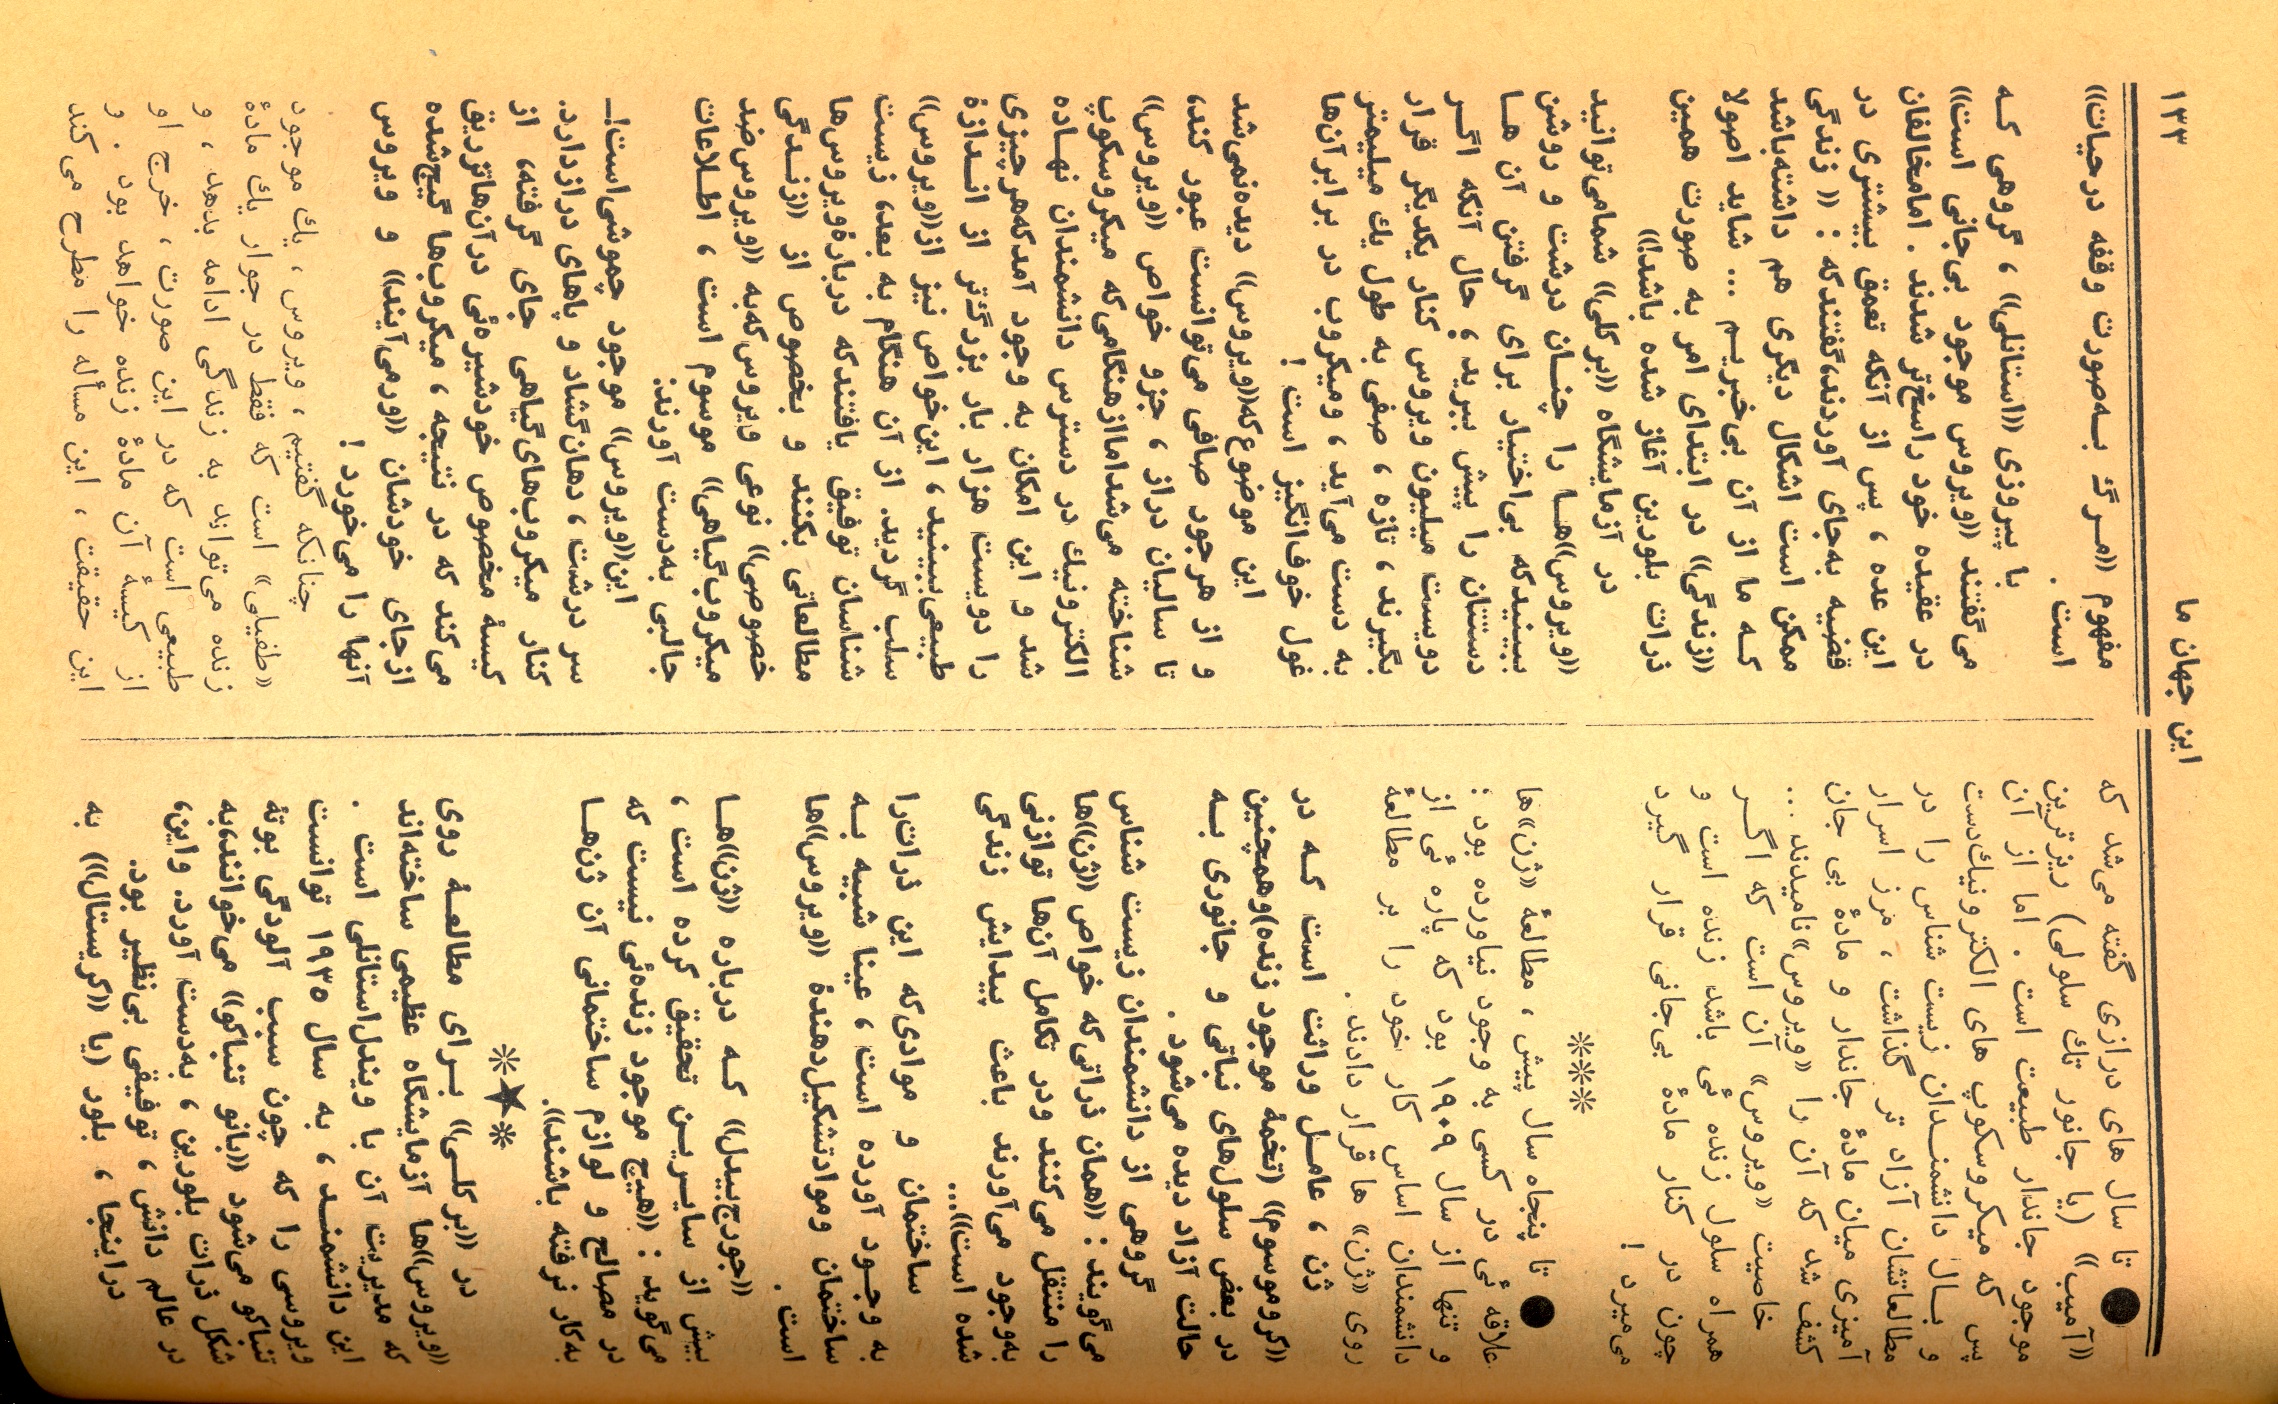 این جهان ما
۱۳۳
تا سال های درازی گفته می‌شد که
«آمیب» (یا جانور تك سلولی) ریزترین
موجود جاندار طبیعت است . اما از آن
پس که میکروسکوپ های الکترونیك‌دست
و بــال دانشمنــدان زیست شناس را در
مطالعاتشان آزاد تر گذاشت ، مرز اسرار
آمیزی میان مادهٔ جاندار و مادهٔ بی جان
کشف شد که آن را «ویروس»نامیدند ...
خاصیت «ویروس» آن است که اگــر
همراه سلول زنده ئی باشد زنده است و
چون در کنار مادهٔ بی‌جانی قرار گیرد
می‌میرد !
⁂
تا پنجاه سال پیش ، مطالعهٔ «ژن»ها
علاقه ئی در کسی به وجود نیاورده بود :
و تنها از سال ۱۹۰۹ بود که پاره ئی از
دانشمندان اساس کار خود را بر مطالعهٔ
روی «ژن» ها قرار دادند .
ژن ، عامــل وراثت است کــه در
«کروموسوم» (تخمهٔ موجود زنده)وهمچنین
در بعض سلول‌های نباتی و جانوری بــه
حالت آزاد دیده می‌شود .
گروهی از دانشمندان زیست شناس
می‌گویند : «همان ذراتی‌که خواص «ژن»ها
را منتقل می‌کنند ودر تکامل آن‌ها توازنی
به‌وجود می‌آورند باعث پیدایش زندگی
شده است»...
ساختمان و موادی‌که این ذرات‌را
به وجــود آورده است ، عینا شبیه بــه
ساختمان وموادتشکیل‌دهندهٔ «ویروس»ها
است .
«جورج‌بیدل» کــه درباره «ژن»هــا
بیش از سایــریــن تحقیق کرده است ،
می‌گوید : «هیچ موجود زنده‌ئی نیست که
در مصالح و لوازم ساختمانی آن ژن‌هــا
به‌کار نرفته باشند».
⁎★⁎
در «برکلــی» بــرای مطالعــهٔ روی
«ویروس»ها آزمایشگاه عظیمی ساخته‌اند
که مدیریت آن با ویندل‌استانلی است .
این دانشمنــد ، به سال ۱۹۳۵ توانست
ویروسی را که چون سبب آلودگی بوتهٔ
تنباکو می‌شود «بانو تنباکو» می‌خوانند،به
شکل ذرات بلورین ، به‌دست آورد. واین،
در عالم دانش ، توفیقی بی‌نظیر بود.
دراینجا ، بلور (یا «کریستال») به
مفهوم «مــرگ بــه‌صورت وقفه درحیات»
است .
با پیروزی «استانلی» ، گروهی کــه
می‌گفتند «ویروس موجود بی‌جانی است»
در عقیده خود راسخ‌تر شدند . امامخالفان
این عده ، پس از آنکه تعمق بیشتری در
قضیه به‌جای آوردند،گفتندکه : « زندگی
ممکن است اشکال دیگری هم داشته‌باشد
کــه ما از آن بی‌خبریــم ... شاید اصولا
«زندگی» در ابتدای امر به صورت همین
ذرات بلورین آغاز شده باشد!»
در آزمایشگاه «برکلی» شمامی‌توانید
«ویروس»هــا را چنــان درشت و روشن
ببینیدکه بی‌اختیار برای گرفتن آن هــا
دستتان را پیش ببرید ، حال آنکه اگــر
دویست میلیون ویروس کنار یکدیگر قرار
بگیرند ، تازه ، صفی به طول یك میلیمتر
به دست می‌آید ، ومیکروب در برابرآن‌ها
غول خوف‌انگیز است !
این موضوع‌که«ویروس» دیده‌نمی‌شد
و از هرجود صافی می‌توانست عبور کند،
تا سالیان دراز ، جزو خواص «ویروس»
شناخته می‌شداماازهنگامی‌که میکروسکوپ
الکترونیك در دسترس دانشمندان نهــاده
شد و این امکان به وجود آمدکه‌هرچیزی
را دویست هزار بار بزرگ‌تر از انــدازهٔ
طبیعی‌ببینید ، این‌خواص نیز از«ویروس»
سلب گردید. از آن هنگام به بعد، زیست
شناسان توفیق یافتندکه دربارهٔ‌ویروس‌ها
مطالعاتی بکنند و بخصوص از «زنــدگی
خصوصی» نوعی ویروس‌که‌به «ویروس‌ضد
میکروب‌گیاهی» موسوم است ، اطــلاعات
جالبی به‌دست آورند:
این«ویروس» موجود چموشی‌است!ــ
سر درشت ، دهان‌گشاد و پاهای درازدارد.
کنار میکروب‌های‌گیاهی جای گرفته، از
کیسهٔ مخصوص خودشیره‌ئی درآن‌هاتزریق
می‌کند که در نتیجه ، میکروب‌ها گیج‌شده
ازجای خودشان «ورمی‌آیند» و ویروس
آنها را می‌خورد !
چنانکه گفتیم ، ویروس ، یك موجود
«طفیلی» است که فقط در جوار یك مادهٔ
زنده می‌تواند به زندگی ادامه بدهد ، و
طبیعی است که در این صورت ، خرج او
از کیسهٔ آن مادهٔ زنده خواهد بود . و
این حقیقت ، این مسأله را مطرح می‌کند